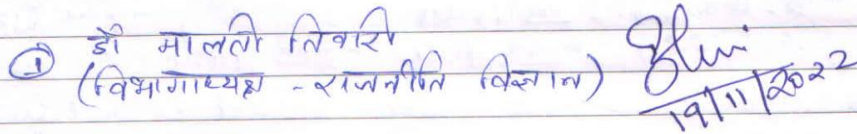 ① डॉ मालती तिवारी
(विभागाध्यक्ष - राजनीति विज्ञान)
19/11/2022